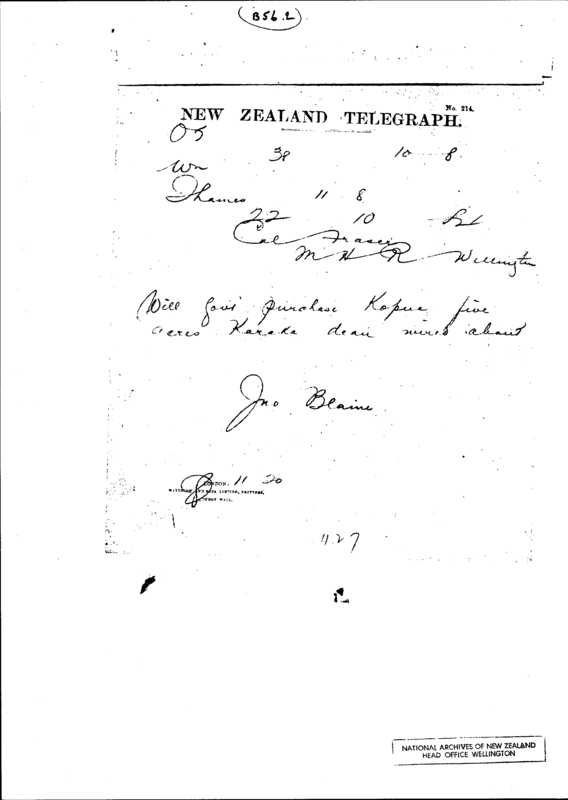 B56.2
No. 214.
NEW ZEALAND TELEGRAPH.
OS
38 10 8
Wn
Thames 11 8
22 10
Col Fraser
M H R Wellington
Will Govt purchase Kopua five
acres Karaka about
Jno Blaine
LONDON. 11 20
LIMITED, PRINTERS,
LONDON WALL.
4.27
NATIONAL ARCHIVES OF NEW ZEALAND
HEAD OFFICE WELLINGTON